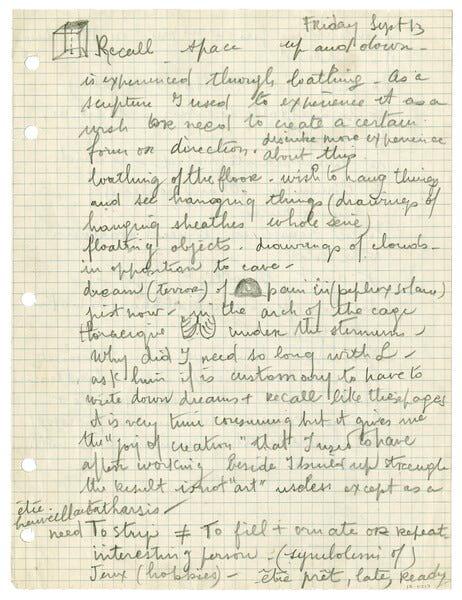 Friday Sept 13
Recall space up and down -
is experienced through loathing - as a
sculpture I used to experience it as a
wish or need to create a certain
form or direction. describe more experience
about this
loathing of the floor - wish to hang things
and see hanging things (drawings of
hanging sheathes whole serie)
floating objects. drawings of clouds -
in opposition to cave -
dream (terror) of pain in (peplux solaro)
just now - in the arch of the cage
thoracique under the sternum -
Why did I need so long with L -
ask him if is customary to have to
write down dreams + recall like these pages
it is very time consuming but it gives me
the "joy of creation" that I used to have
after working beside I build up strength
the result is not "art" useless except as a
catharsis -
être
need To strip ≠ To fill + ornate or repeat -
interesting person - (symbolism of)
Jeux (hobbies) - être prêt, late, ready